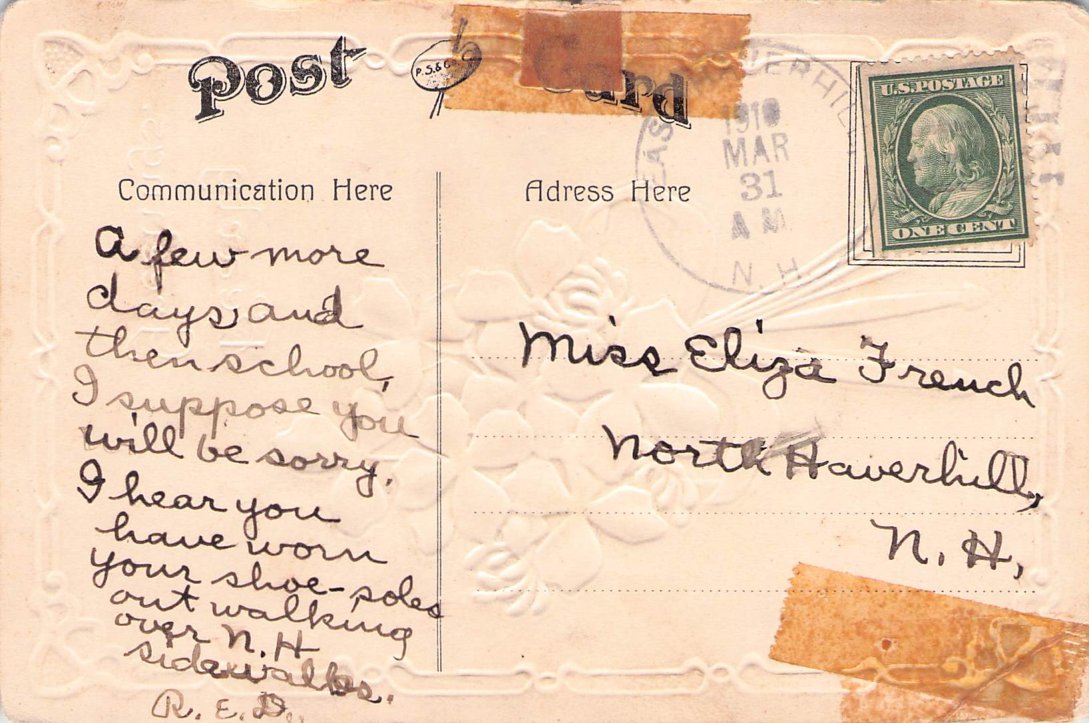 Post Card
P.S.&Co.
Communication Here
Adress Here
EAST HAVERHILL
1910
MAR
31
A M
N.H.
U.S. POSTAGE
ONE CENT
A few more
days, and
then school,
I suppose you
will be sorry.
I hear you
have worn
your shoe-soles
out walking
over N.H
sidewalks.
R. E. D.
Miss Eliza French
North Haverhill,
N. H,